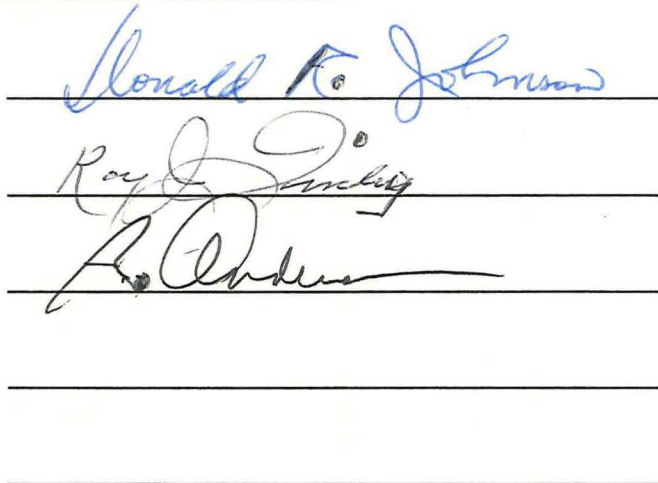 Donald R. Johnson
Roy J.
R. Anderson